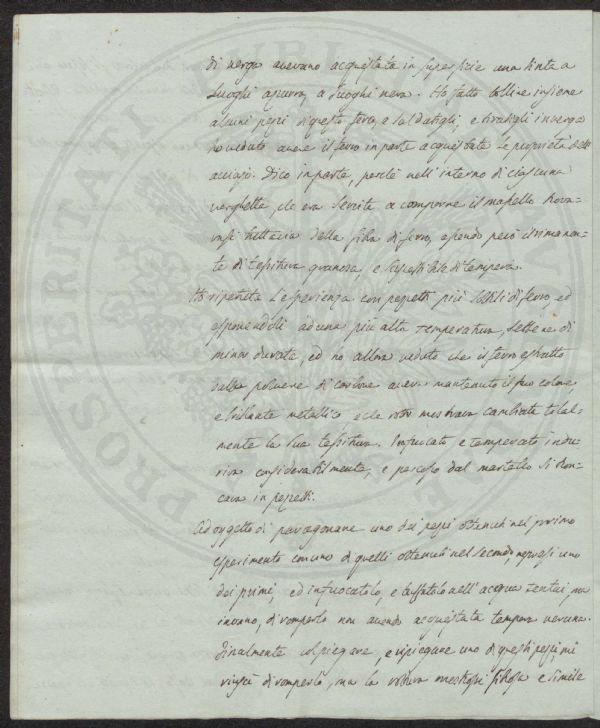 di verga avevano acquistata in superficie una tinta a
luoghi azurra, a luoghi nera. Ho fatto bollire insieme
alcuni pezzi di questo ferro, e saldatigli, e tiratigli in verga
ho veduto avere il ferro in parte acquistate le proprietà dell'
acciajo. Dico in parte, perchè nell'interno di ciascuna
verghetta, che era servita a comporre il mazzello trova-
vasi tuttavia della fibra di ferro, essendo però il rimanen-
te di tessitura granosa, e suscettibile di tempera.
Ho ripetuta l'esperienza con pezzetti più sottili di ferro, ed
esponendoli ad una più alta temperatura, sebbene di
minor durata, ed ho allora veduto che il ferro estratto
dalla polvere di carbone aveva mantenuto il suo colore
e brillante metallico e che rotto mostrava cambiata total-
mente la sua tessitura. Infuocato e temperato indu-
riva considerabilmente, e percosso dal martello si ron-
cava in pezzetti.
Ad oggetto di paragonare uno dei pezzi ottenuti nel primo
esperimento con uno di quelli ottenuti nel secondo, ripresi uno
dei primi, ed infuocatolo, e tuffatolo nell'acqua tentai ma
invano, di romperlo non avendo acquistata tempera veruna.
Finalmente col piegare, e ripiegare uno di questi pezzi, mi
riuscì di romperlo, ma la rottura mostrossi filosa e simile
PROSPERITATI PUBLICAE